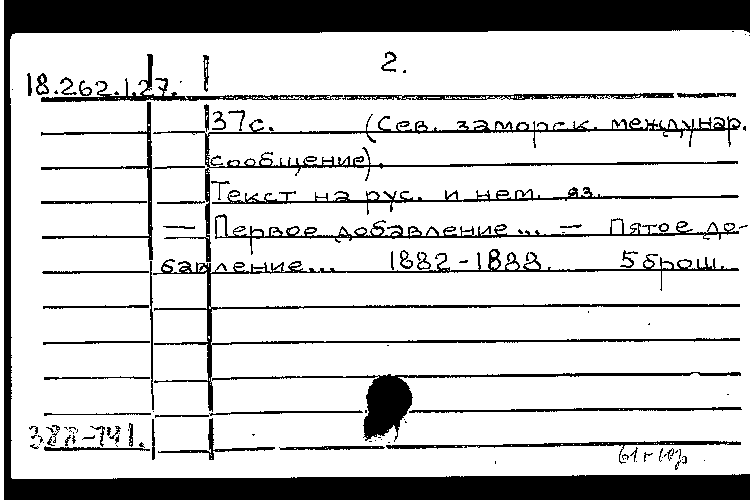 2.
18.262.1.27.
37с. (Сев. заморск. междунар.
сообщение).
Текст на рус. и нем. яз.
— Первое добавление... — Пятое до-
бавление... 1882-1888. 5 брош.
388-741.